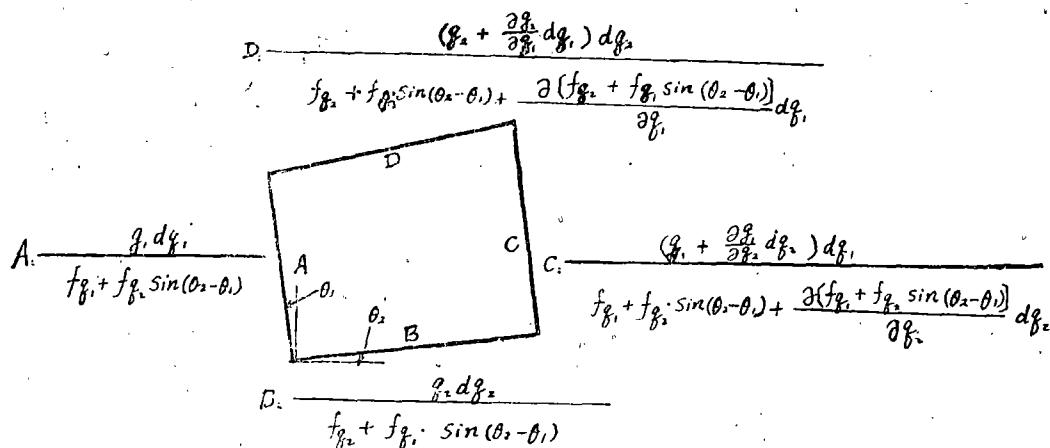 D: (g₂ + ∂g₂/∂q₁ dq₁) dq₂ / f_{q₂} + f_{q₁} sin(θ₂-θ₁) + ∂{f_{q₂} + f_{q₁} sin(θ₂-θ₁)}/∂q₁ dq₁
D
A: g₁dq₁ / f_{q₁} + f_{q₂} sin(θ₂-θ₁)
A
θ₁
θ₂
B
C
C: (g₁ + ∂g₁/∂q₂ dq₂) dq₁ / f_{q₁} + f_{q₂} · sin(θ₂-θ₁) + ∂{f_{q₁} + f_{q₂} sin(θ₂-θ₁)}/∂q₂ dq₂
B: g₂dq₂ / f_{q₂} + f_{q₁} · sin(θ₂-θ₁)